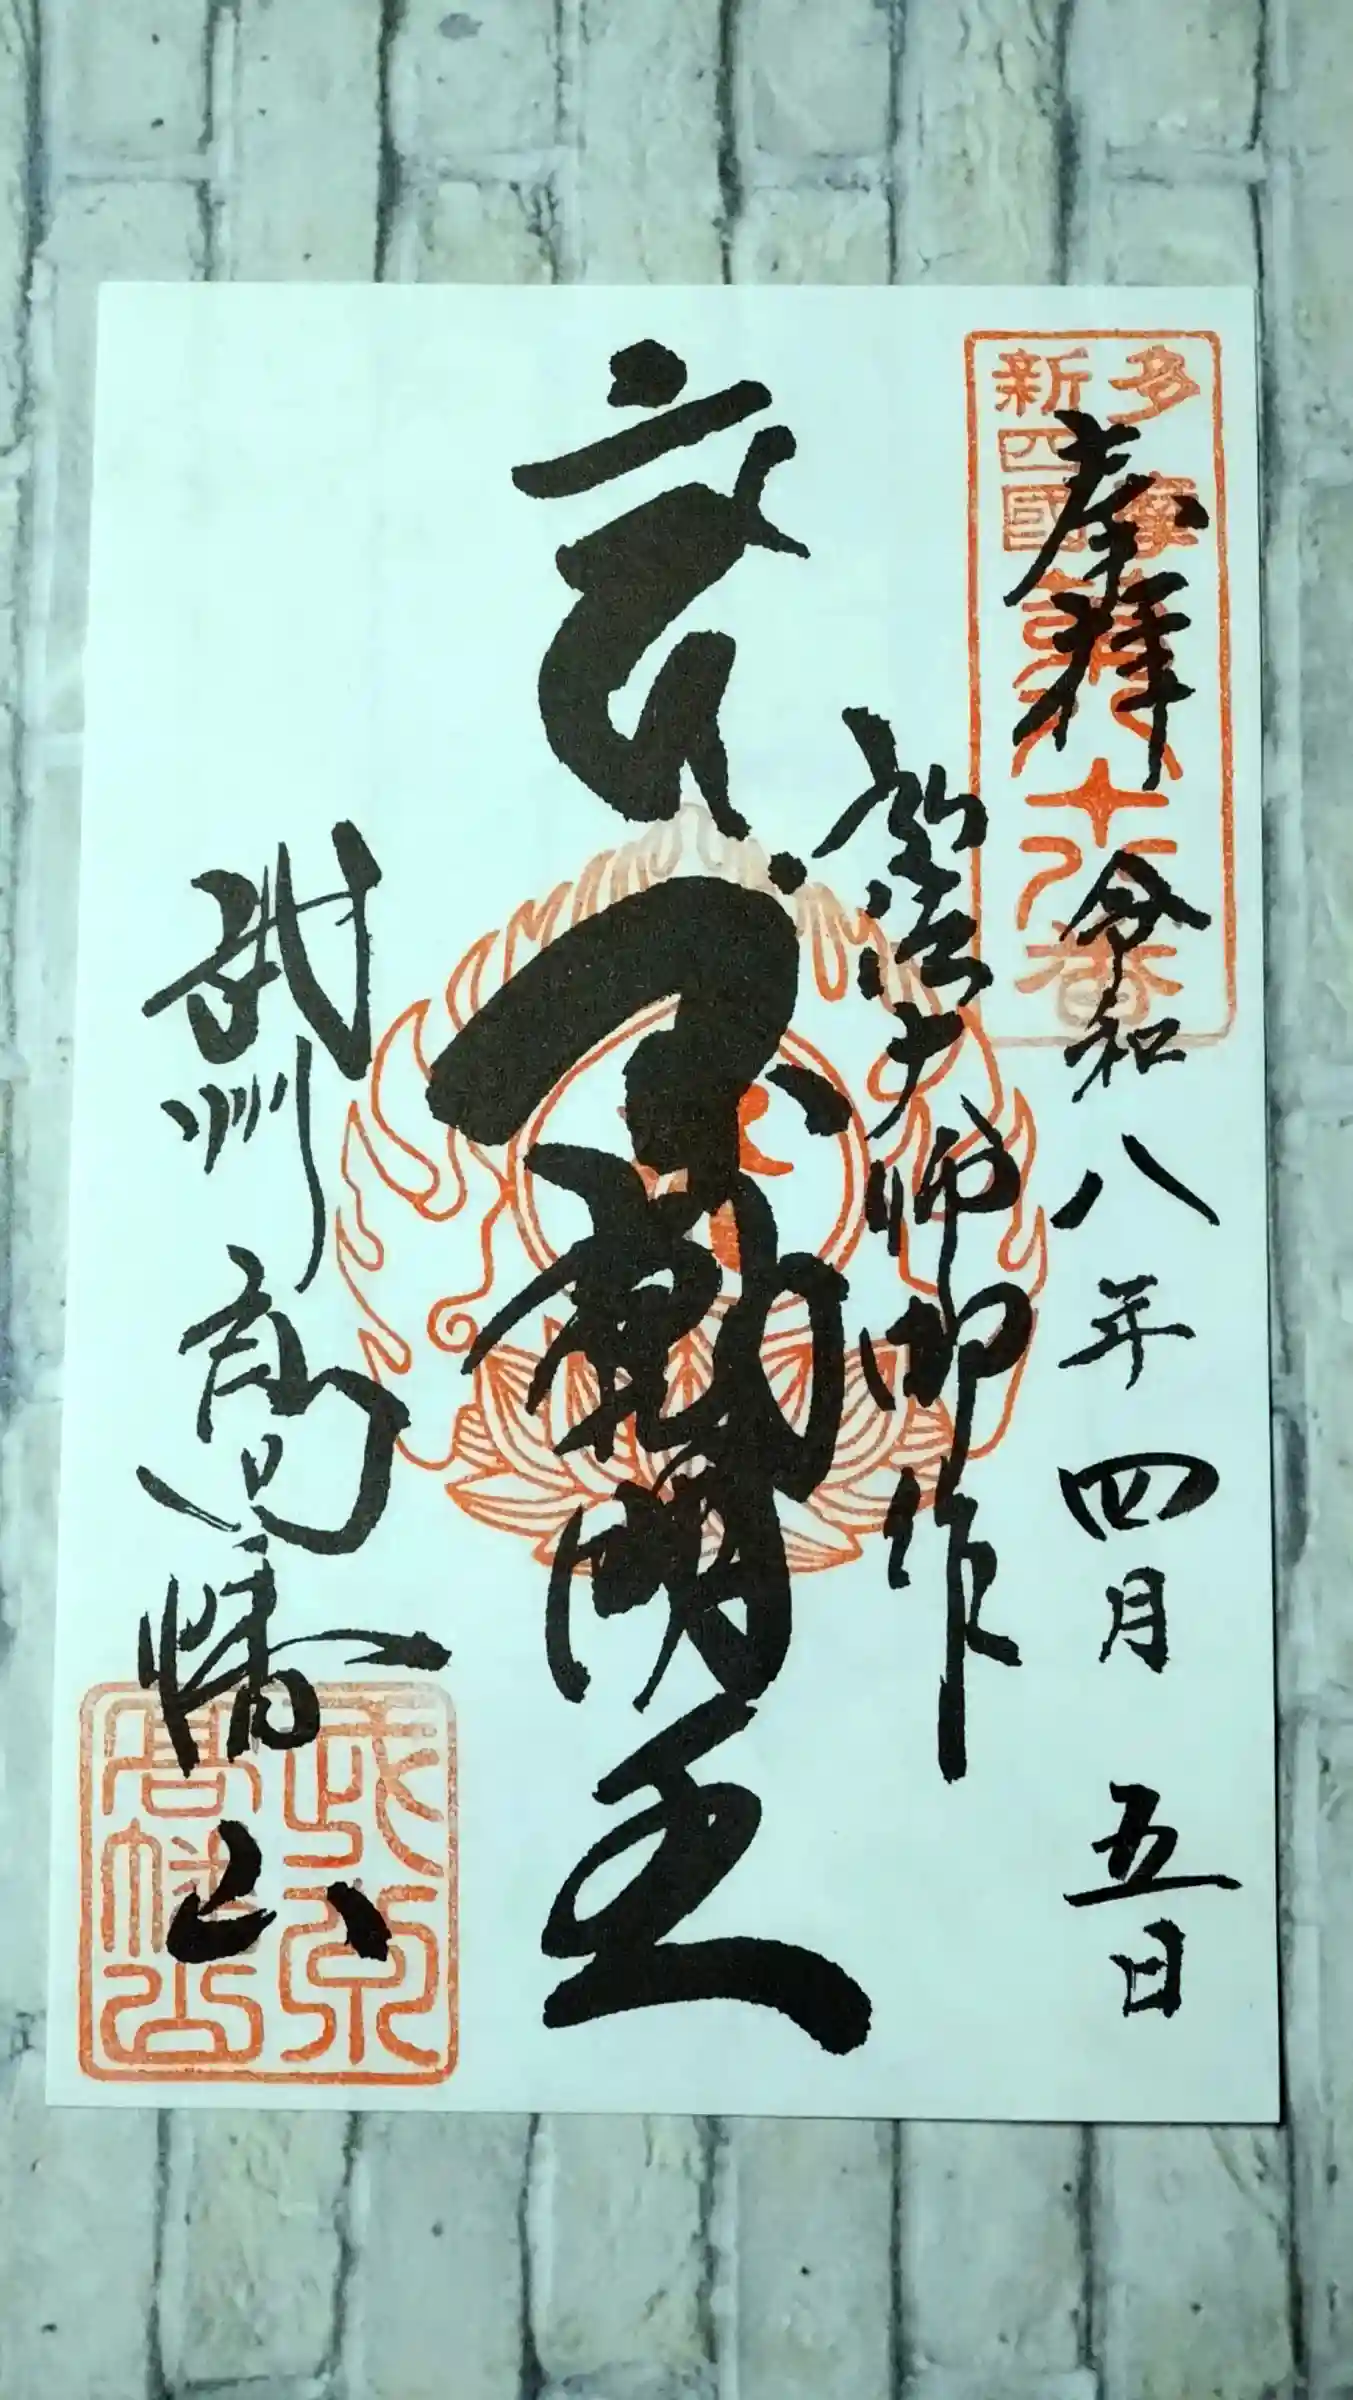 多摩
新四國
第八十八番
奉拝 令和八年四月五日
弘法大師御作
不動明王
武州高幡山
高幡山